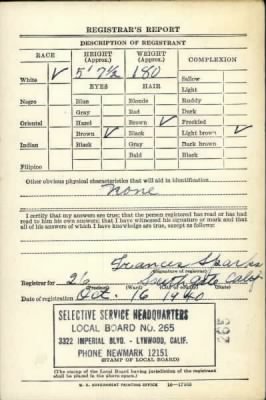 REGISTRAR'S REPORT
DESCRIPTION OF REGISTRANT
RACE HEIGHT (Approx.) WEIGHT (Approx.) COMPLEXION
White ✓ 5' 7½ 180 Sallow
Light
EYES HAIR
Negro Blue Blonde Ruddy
Gray Red Dark
Oriental Hazel Brown ✓ Freckled
Brown ✓ Black Light brown ✓
Indian Black Gray Dark brown
Bald Black
Filipino
Other obvious physical characteristics that will aid in identification
None
I certify that my answers are true; that the person registered has read or has had
read to him his own answers; that I have witnessed his signature or mark and that
all of his answers of which I have knowledge are true, except as follows:
Frances Sparks
(Signature of registrar)
Registrar for 26 South Gate Calif
(Precinct) (Ward) (City or county) (State)
Date of registration Oct. 16 1940
SELECTIVE SERVICE HEADQUARTERS
LOCAL BOARD NO. 265
3322 IMPERIAL BLVD. - LYNWOOD, CALIF.
PHONE NEWMARK 12151
(STAMP OF LOCAL BOARD)
265
(The stamp of the Local Board having jurisdiction of the registrant
shall be placed in the above space.)
U. S. GOVERNMENT PRINTING OFFICE